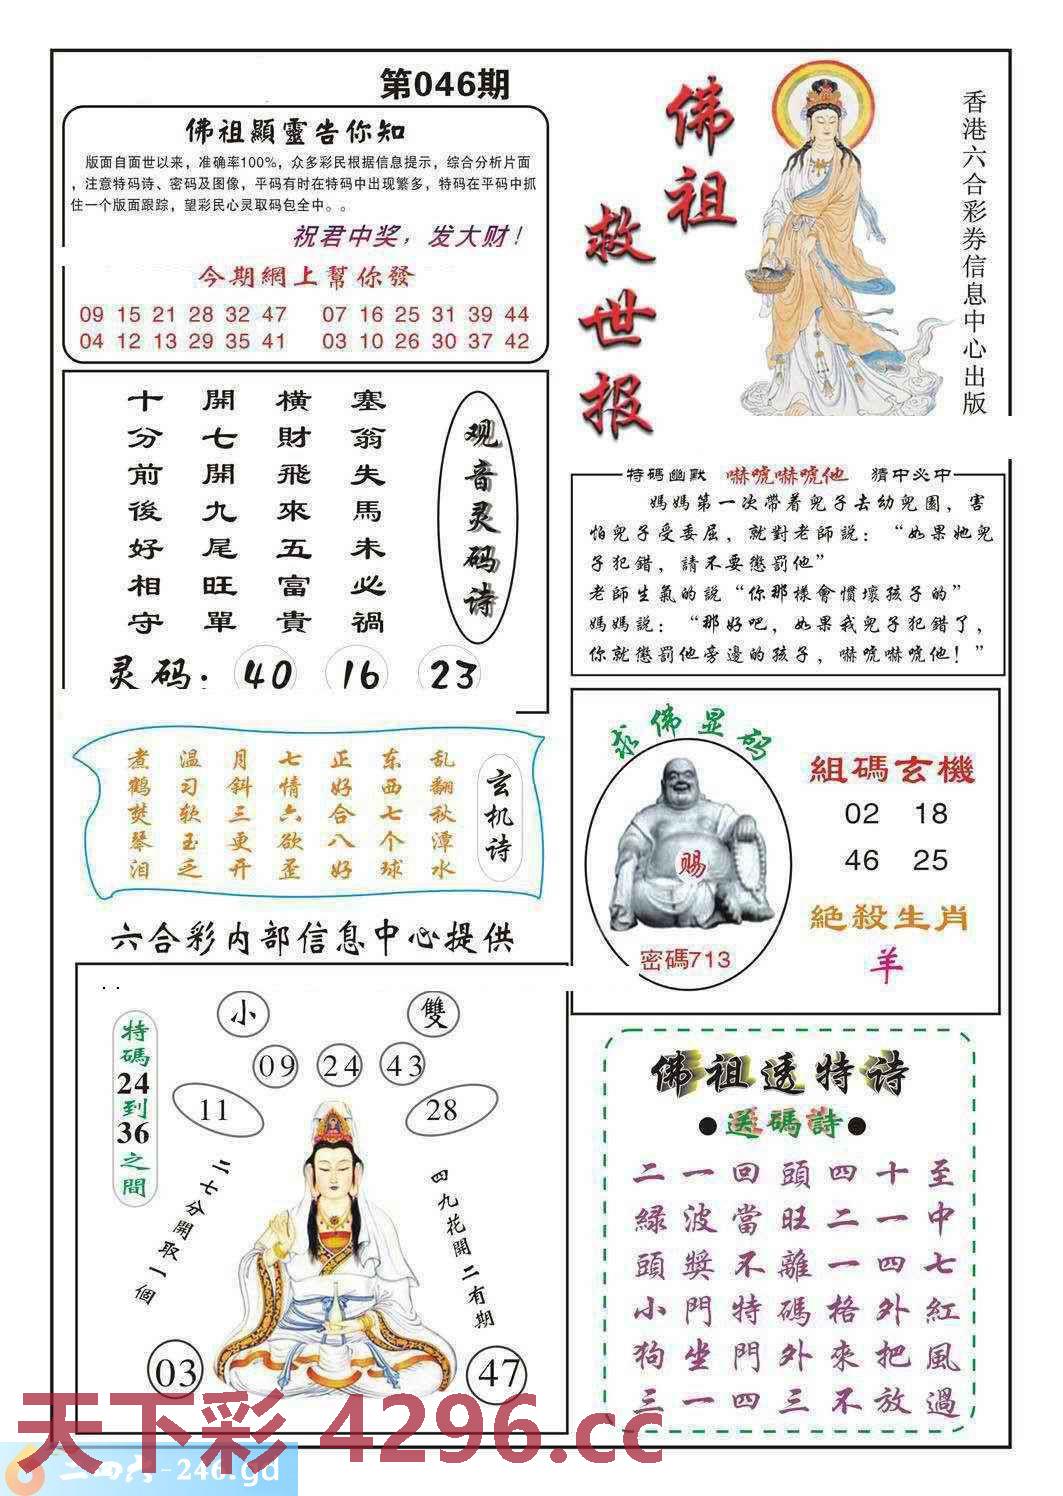 第046期
佛祖顯靈告你知
版面自面世以来，准确率100%，众多彩民根据信息提示，综合分析片面
，注意特码诗、密码及图像，平码有时在特码中出现繁多，特码在平码中抓
住一个版面跟踪，望彩民心灵取码包全中。。
祝君中奖，发大财！
今期網上幫你發
09 15 21 28 32 47 07 16 25 31 39 44
04 12 13 29 35 41 03 10 26 30 37 42
佛祖
救世报
香港六合彩券信息中心出版
观音灵码诗
塞翁失馬未必禍
橫財飛來五富貴
開七開九尾旺單
十分前後好相守
灵码：40 16 23
特碼幽默 嚇唬嚇唬他 猜中必中
媽媽第一次帶着兒子去幼兒園，害
怕兒子受委屈，就對老師説：“如果她兒
子犯錯，請不要懲罰他”
老師生氣的説“你那樣會慣壞孩子的”
媽媽説：“那好吧，如果我兒子犯錯了，
你就懲罰他旁邊的孩子，嚇唬嚇唬他！”
玄机诗
乱翻秋潭水
东西七个球
正好合八好
七情六欲歪
月斜三更开
温习软玉乏
煮鹤焚琴泪
六合彩内部信息中心提供
求佛显码
赐
密碼713
組碼玄機
02 18
46 25
絶殺生肖
羊
特碼24到36之間
小
雙
09 24 43
11
28
二七分開取一個
四九花開二有期
03
47
佛祖透特诗
●送碼詩●
二一回頭四十至
緑波當旺二一中
頭獎不離一四七
小門特碼格外紅
狗坐門外來把風
三一四三不放過
天下彩 4296.cc
二四六-246.gd